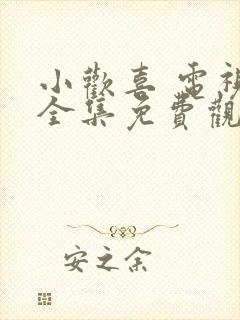 小歡喜 電視
全集免費觀
安之余